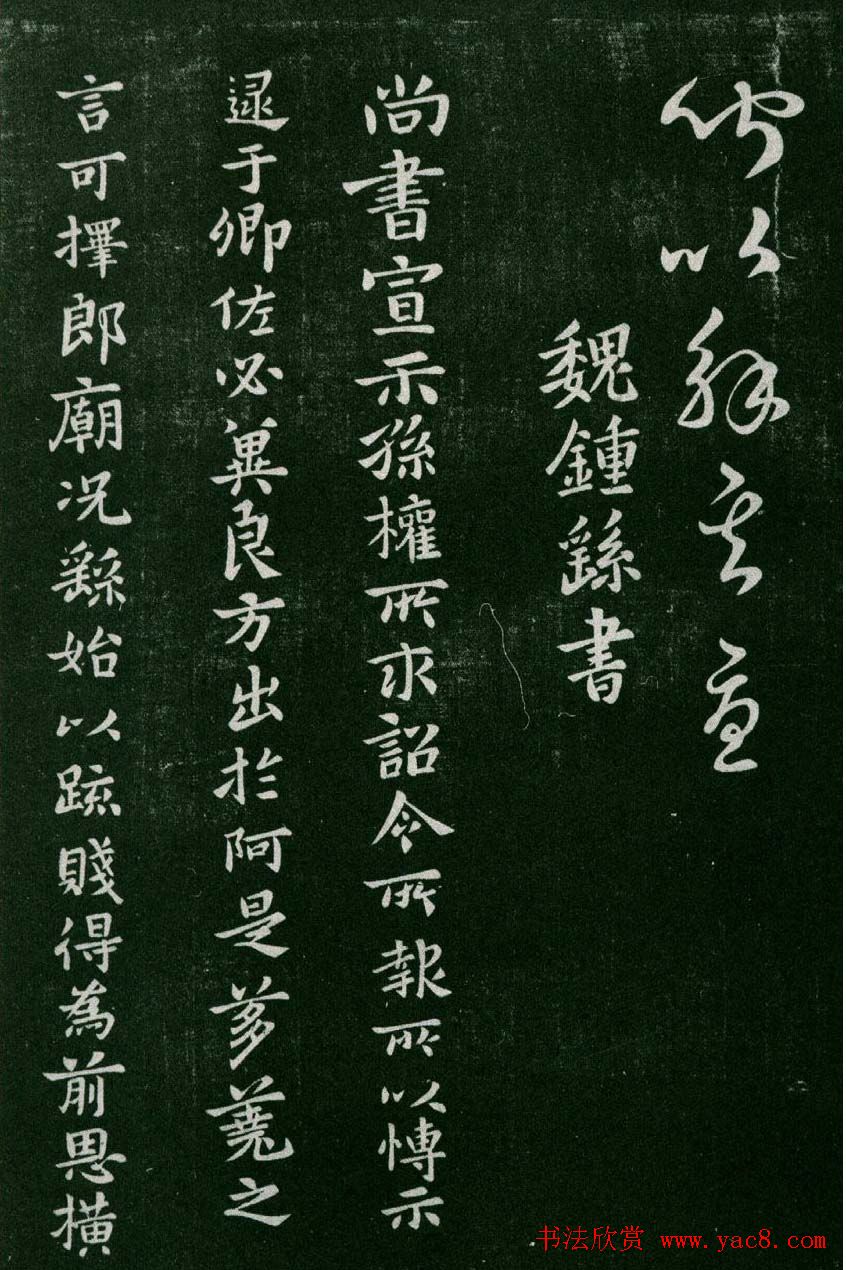 以解
魏鍾繇書
尚書宣示孫權所求詔令所報所以愽示
逮于卿佐必冀良方出於阿是芻蕘之
言可擇郎廟況繇始以踈賤得為前恩横
书法欣赏 www.yac8.com